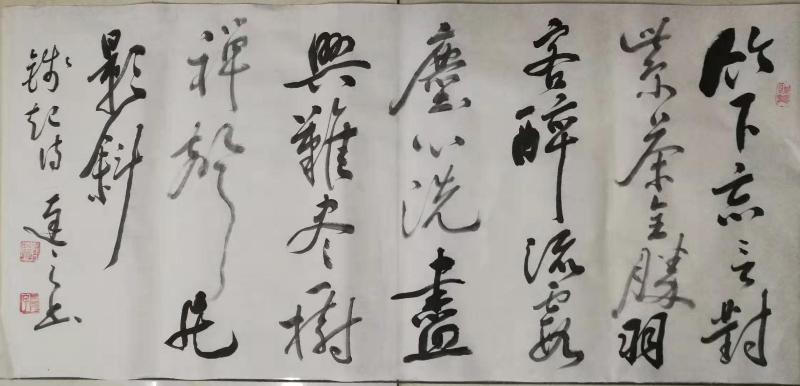 竹下忘言對
紫茶全勝羽
客醉流霞
塵心洗盡
興難尽一樹
禪聲片
影斜
錢起诗 之书